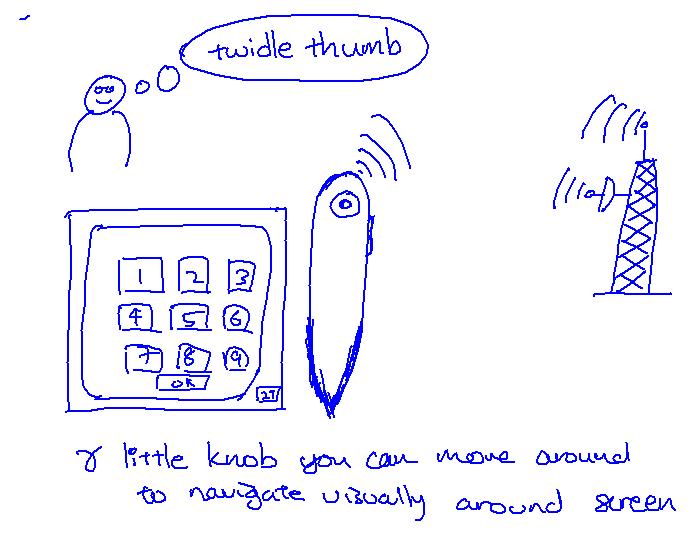 twidle thumb
1 2 3
4 5 6
7 8 9
OK
little knob you can move around
to navigate visually around screen